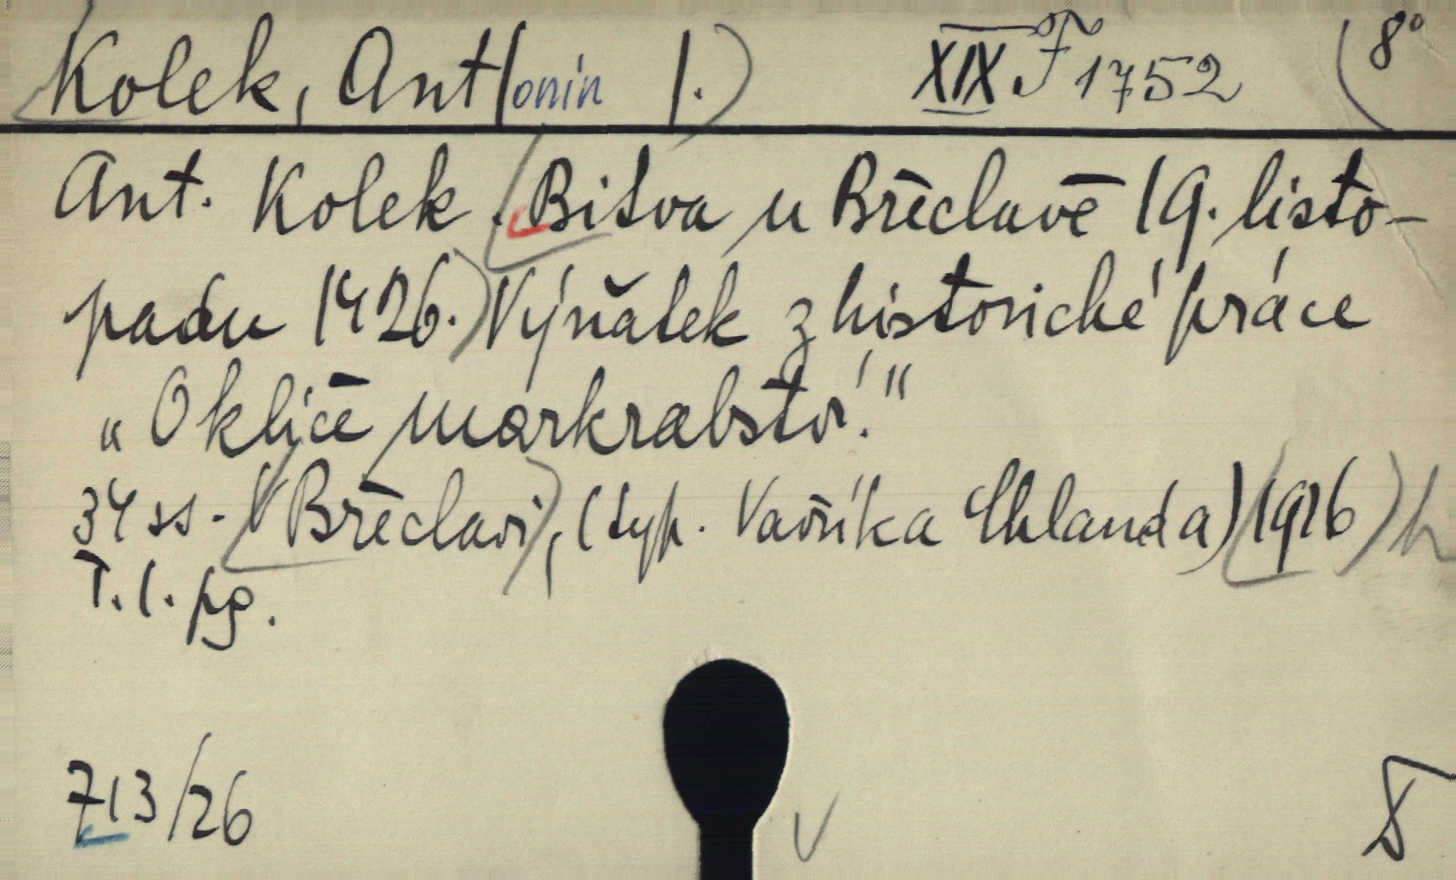 Kolek, Ant(onín J.) XIX F 1752 (8°
Ant. Kolek. Bitva u Břeclavě 19. listo-
padu 1426. Výňatek z historické práce
„Oklíče markrabství."
34 ss. V Břeclavi, (typ. Vavříka Chlanda) 1926
T. l. pg.
713/26
V